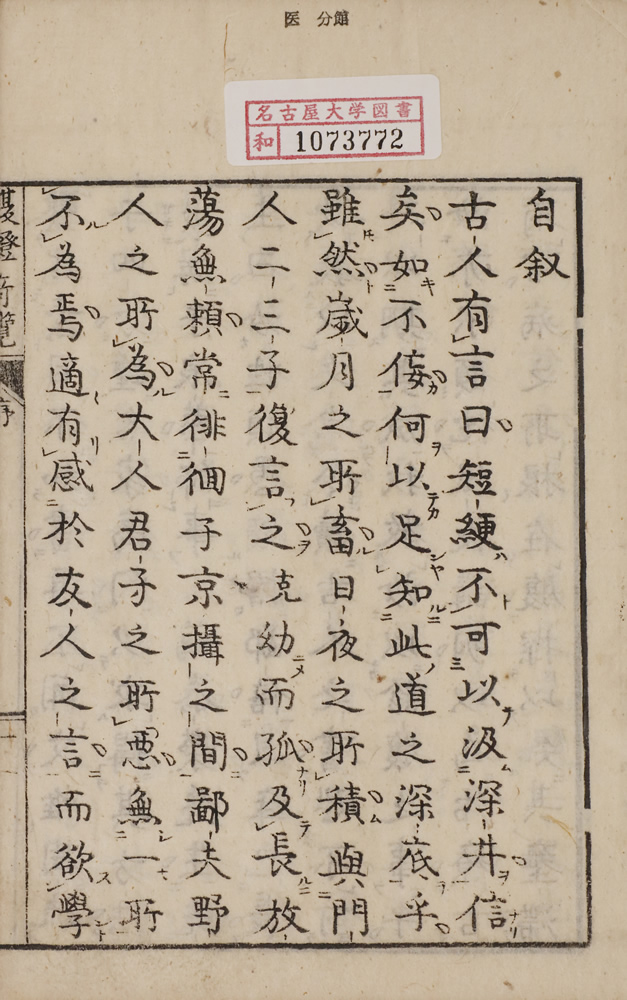 医 分館
名古屋大学図書
和 1073772
自叙
古人有言曰短綆不可以汲深井信
矣如不倭何以足知此道之深底乎
雖然歳月之所畜日夜之所積與門
人二三子復言之克幼而孤及長放
蕩無頼常徘徊于京攝之間鄙夫野
人之所為大人君子之所悪無一所
不為焉適有感於友人之言而欲學
序